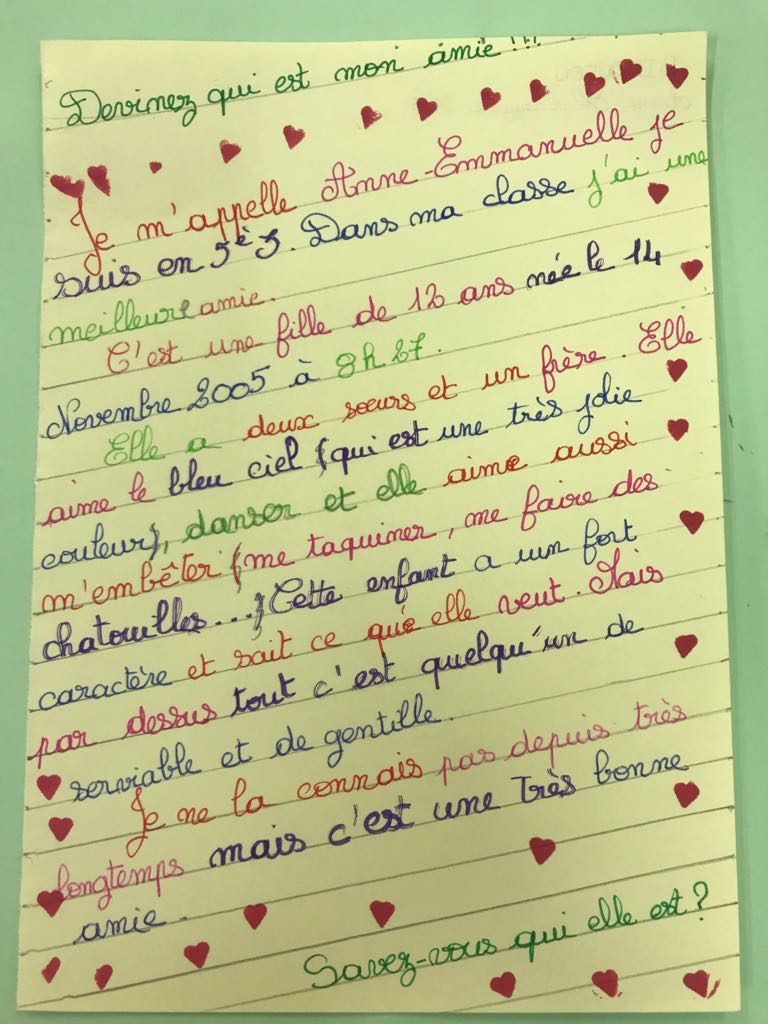 Devinez qui est mon amie !!!
Je m'appelle Anne-Emmanuelle je
suis en 5è5. Dans ma classe j'ai une
meilleure amie.
C'est une fille de 12 ans née le 14
Novembre 2005 à 8h27.
Elle a deux sœurs et un frère. Elle
aime le bleu ciel (qui est une très jolie
couleur), danser et elle aime aussi
m'embêter (me taquiner, me faire des
chatouilles...) Cette enfant a un fort
caractère et sait ce que elle veut. Mais
par dessus tout c'est quelqu'un de
serviable et de gentille.
Je ne la connais pas depuis très
longtemps mais c'est une très bonne
amie.
Savez-vous qui elle est ?